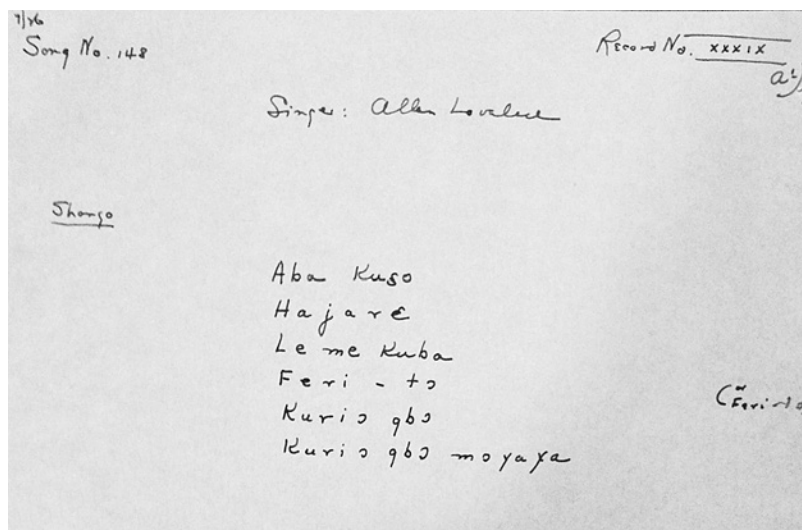 7/26
Song No. 148
Record No. XXXIX
Singer: Allen Lovelace
Shango
Aba Kuso
Hajarɛ
Le me Kuba
Feri - tɔ
(or Feri-
Kuriɔ gbɔ
Kuriɔ gbɔ moyaya